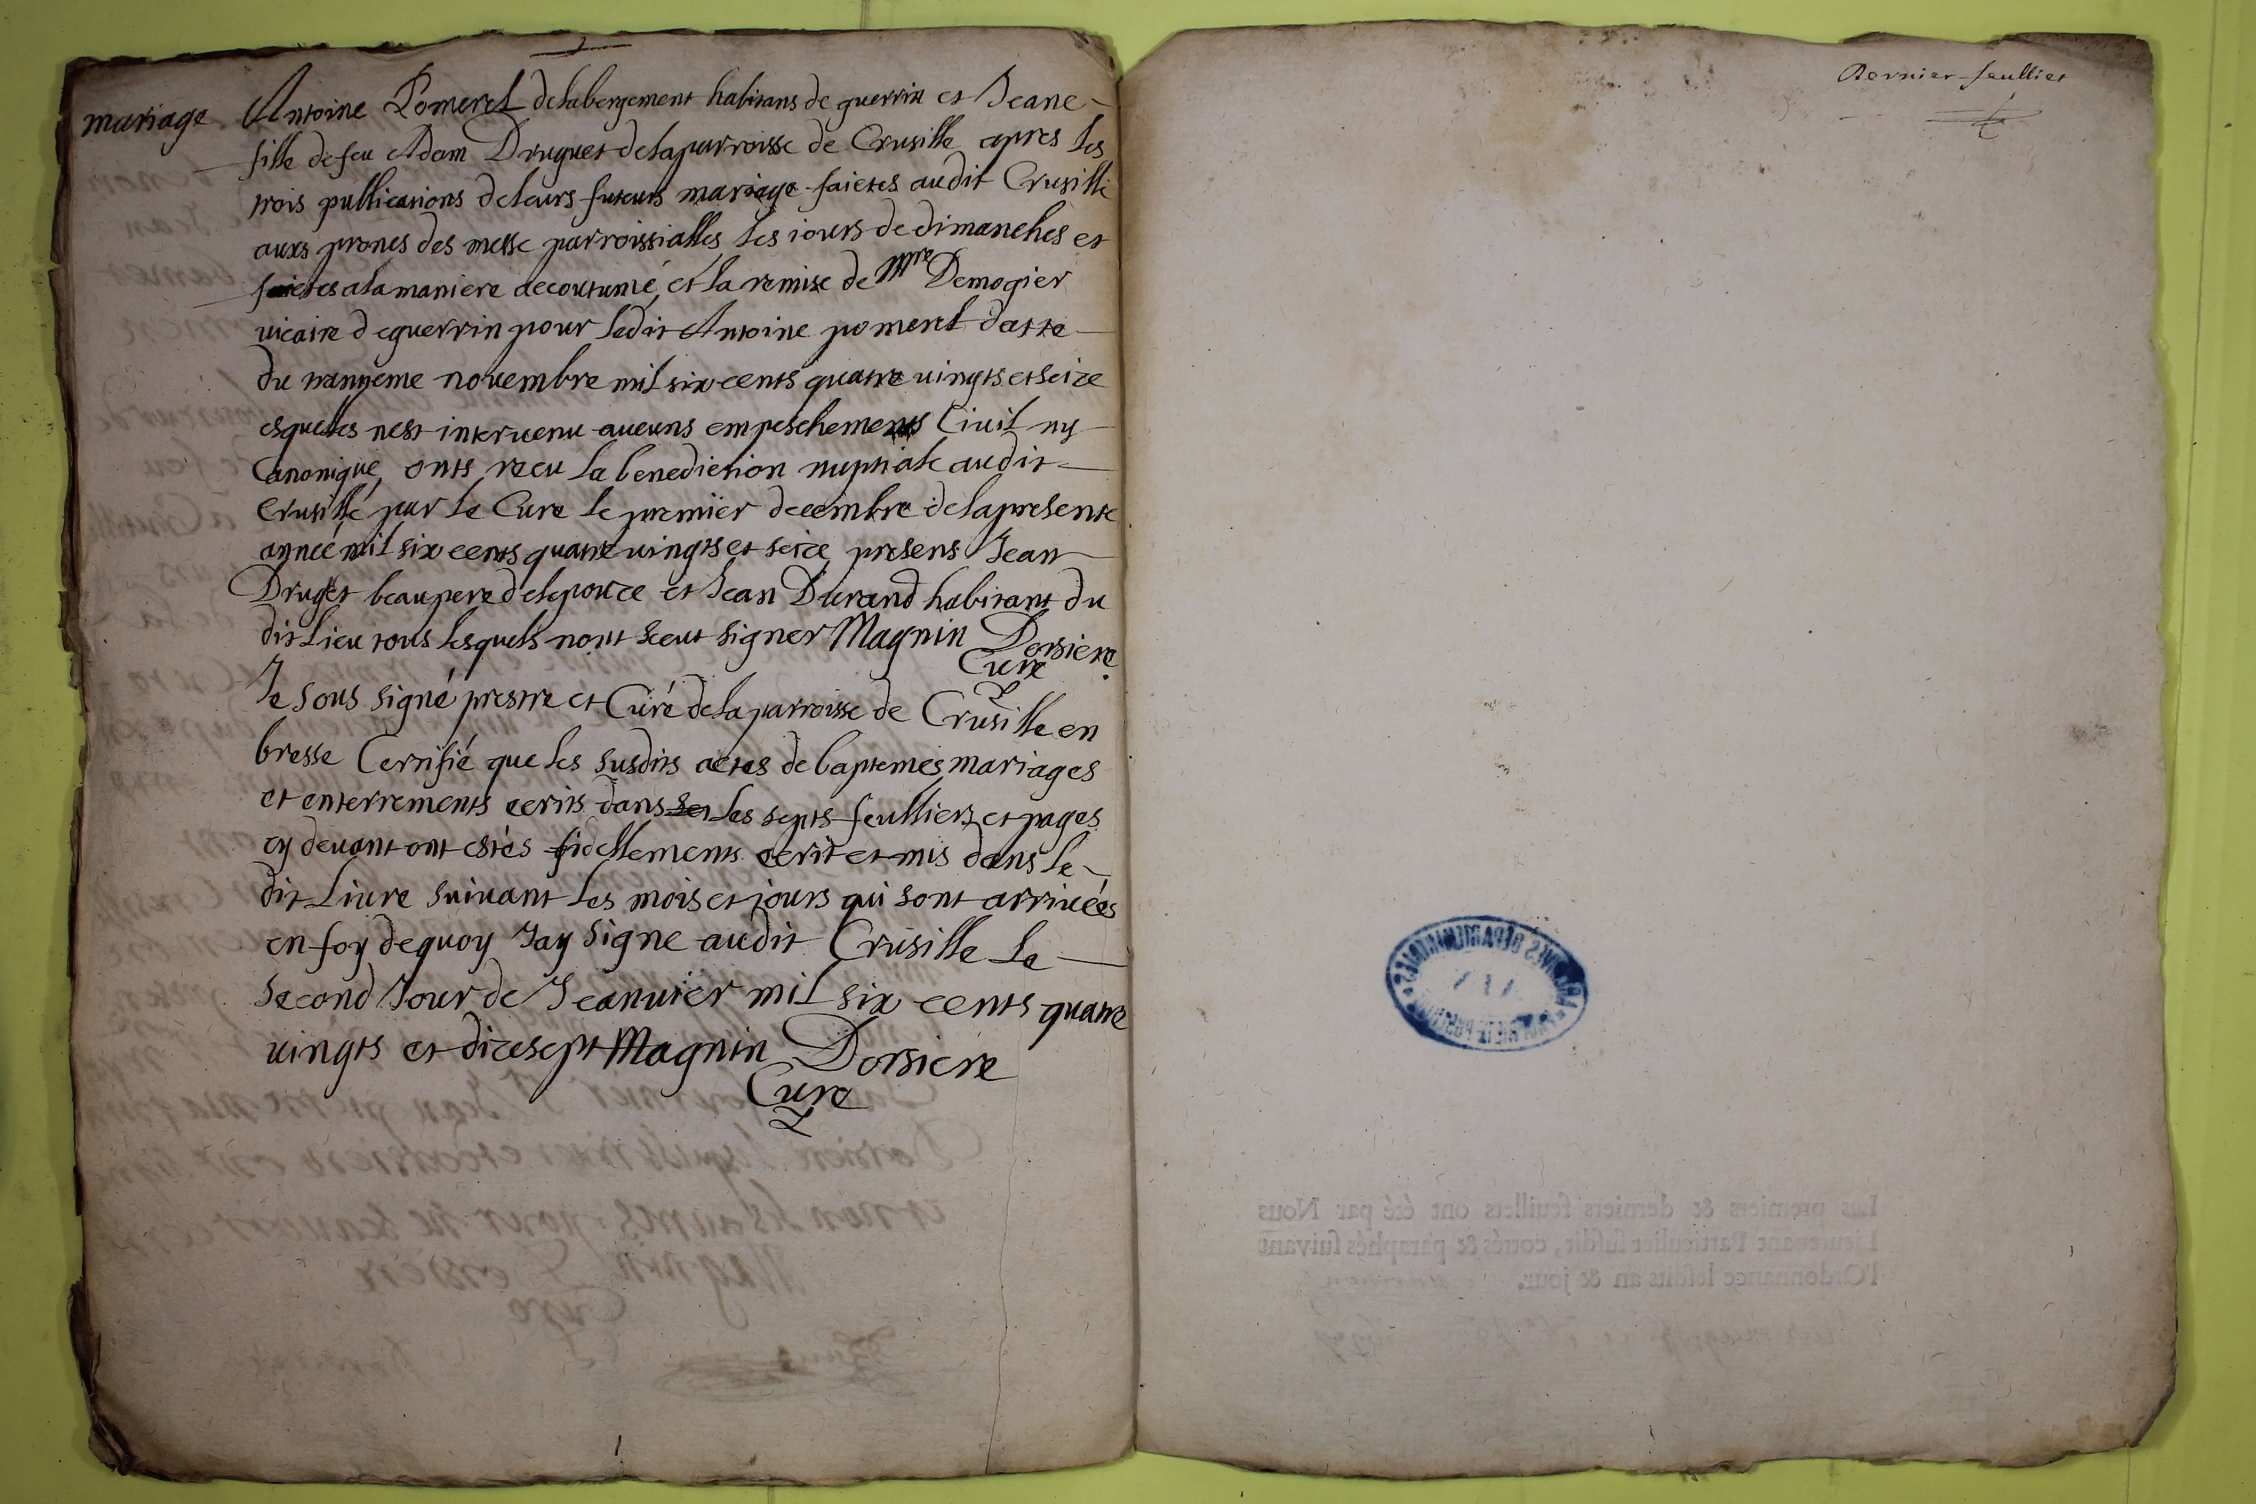 mariage
Antoine Pomerel delabergement habitans de guerrin et Jeane
fille de feu Adam Druguet delaparroisse de Crusille apres les
trois publications deleurs futeurs mariage faictes audit Crusille
auxs prones des messe parroissialles les iours de dimanches et
faictes alamaniere accoutumé, et la remise de Mre Demogier
uicaire deguerrin pour ledit Antoine pomerel datte
du novembre mil six cents quatre uingts et seize
esqueles nest interuenu aucuns empeschements Ciuil ny
Canonique, onts recu la benediction nuptiale audit
Crusille par le Cure le premier decembre delapresente
année mil six cents quatre uingts et seize presens Jean
Druget beaupere delepouze et Jean Durand habitant du
dit Lieu tous lesquels nont sceut signer Magnin Dorsiere
Cure
Je sous signé prestre et Curé delaparroisse de Crusille en
bresse Certifié que les susdits actes de baptemes mariages
et enterrements ecrits dans les septs feulliets et pages
cy deuant ont estés fidellements ecrit et mis dans le
dit Liure suiuant les mois et jours qui sont arriuées
en foy dequoy Jay signe audit Crusille Le
second Jour de Jeanuier mil six cents quatre
uingts et dizesept Magnin Dorsiere
Cure
Dernier feulliet
ARCHIVES DÉPARTEMENTALES
Les premiers & derniers feuillets ont été par Nous
Lieutenant Particulier susdit, cottés & paraphés suivant
l'Ordonnance lesdits an & jour.